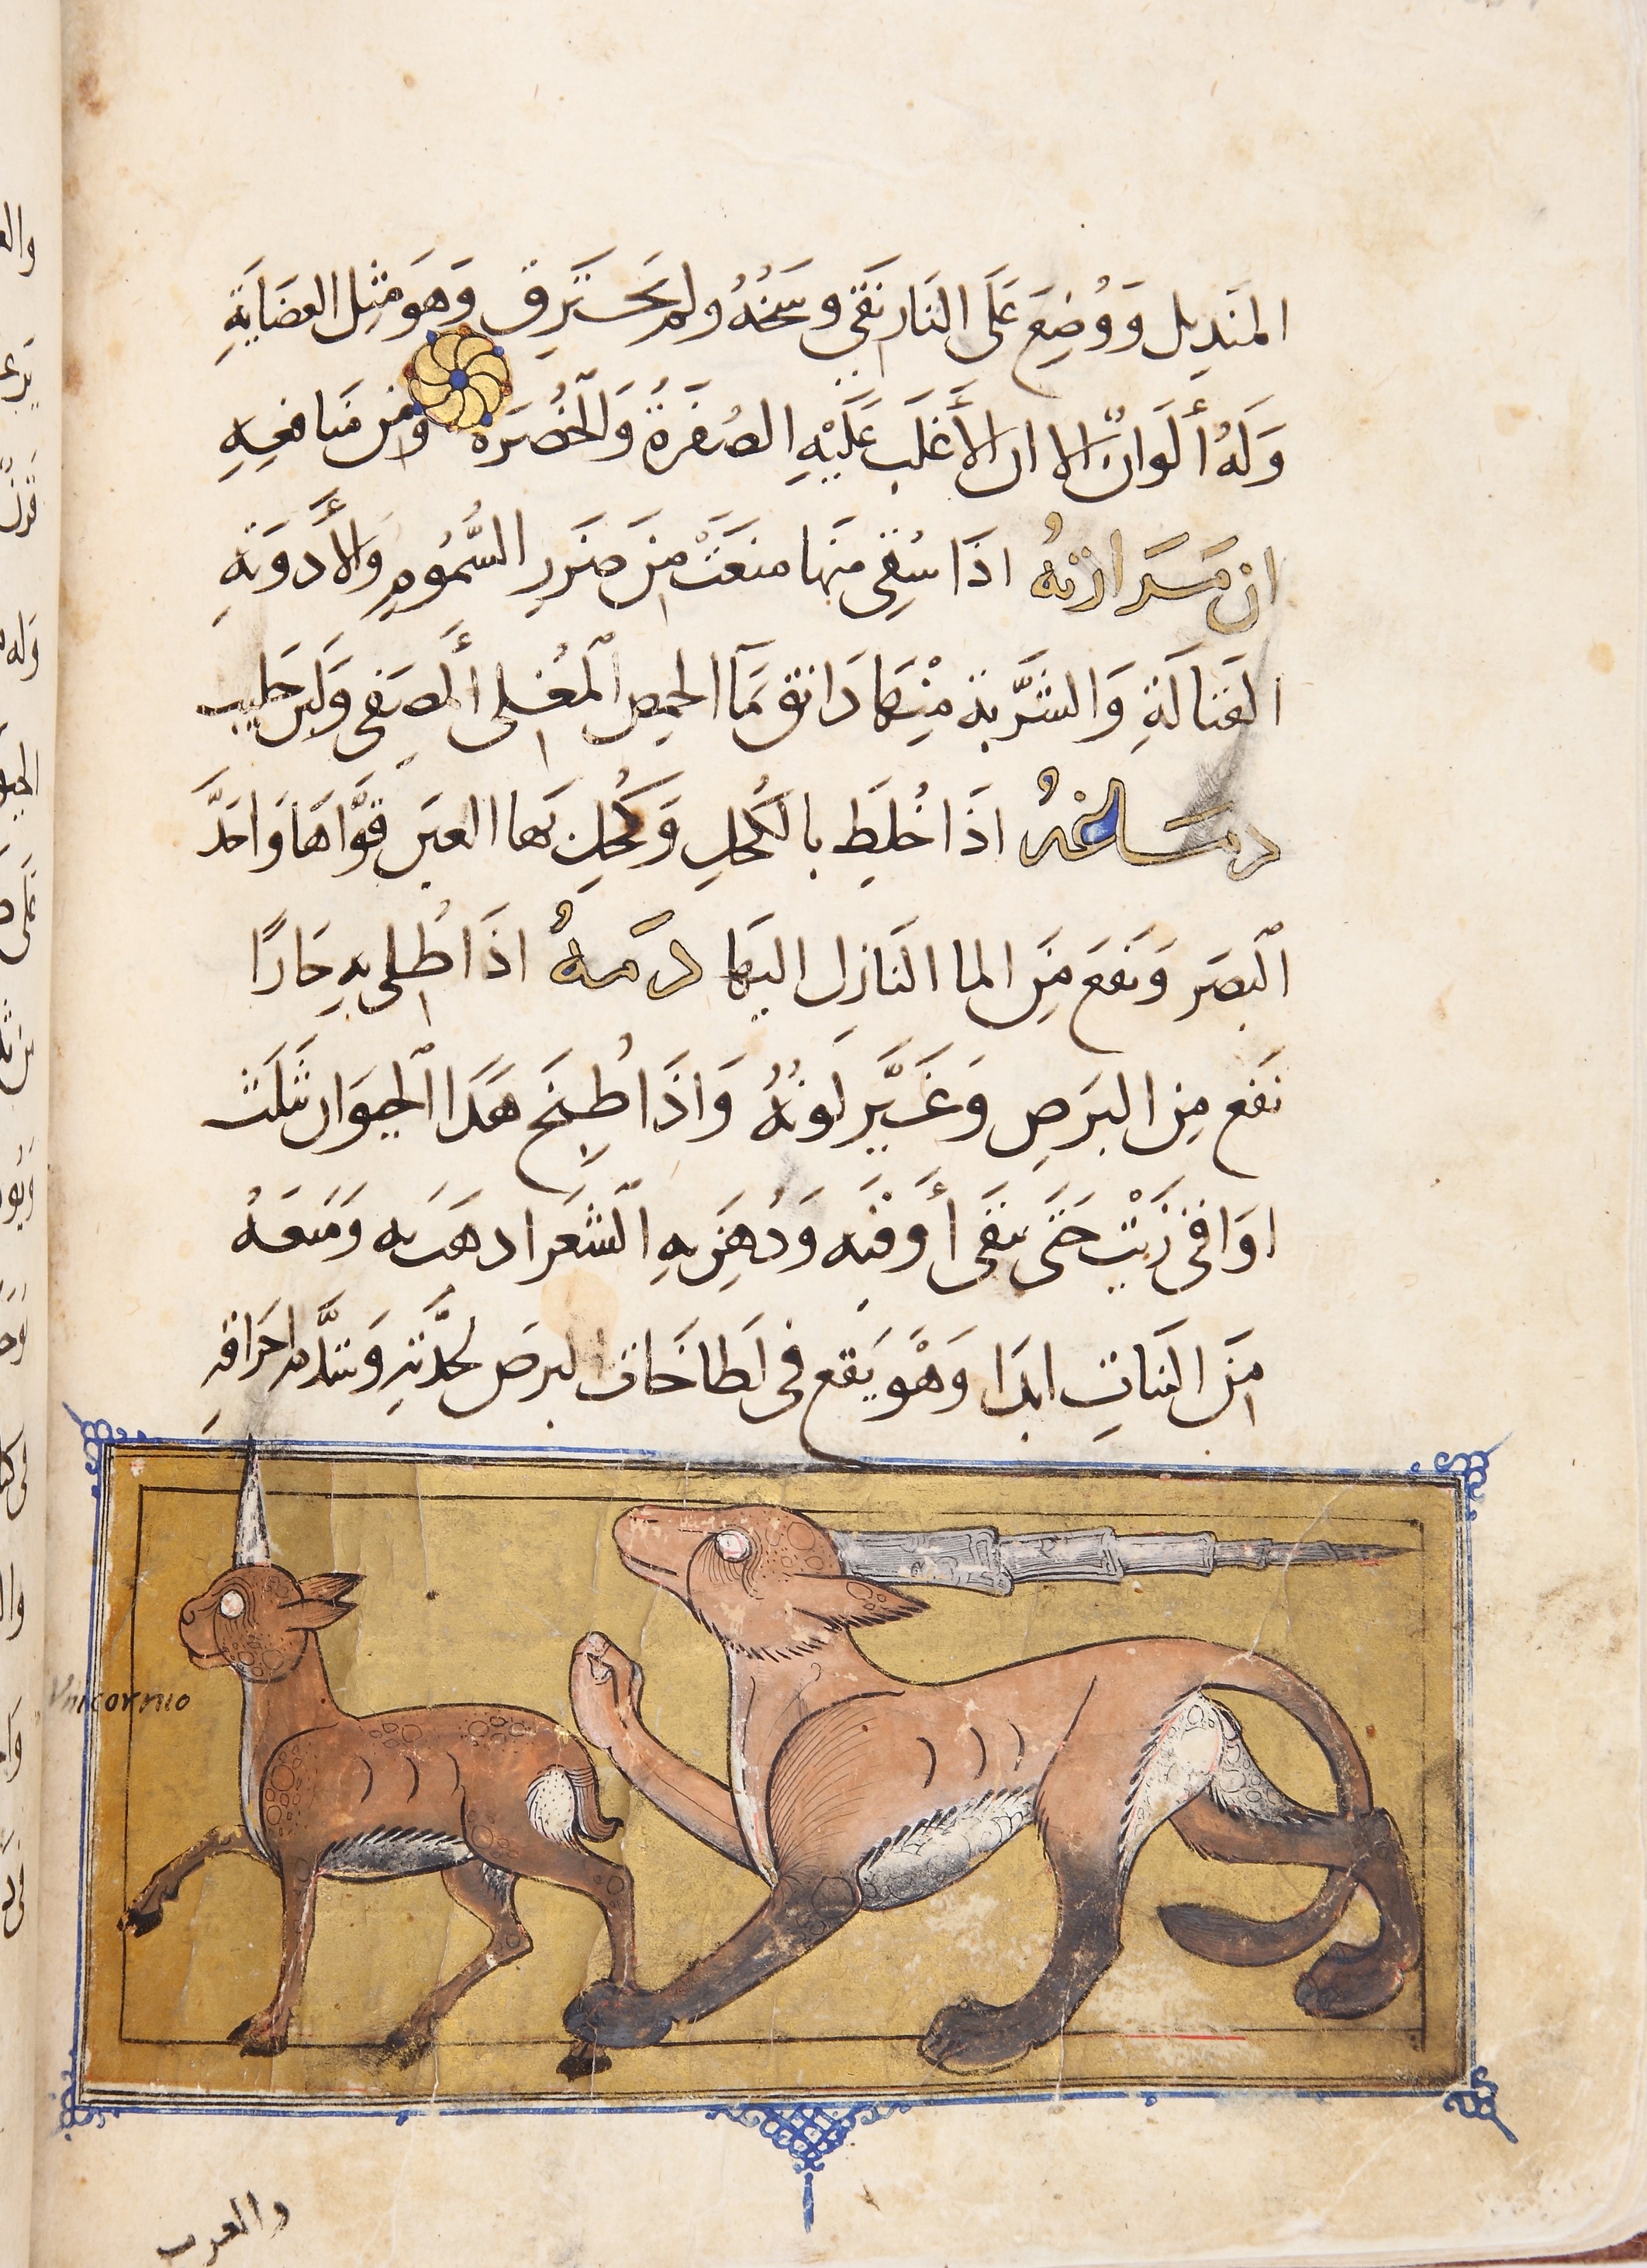 المَنديل وَوُضِعَ عَلَى النَار نَقَي وسَخُهُ ولم يَحتَرِق وَهوَ مثِل العضَايَةِ
وَلَهُ ألوَانٌ الا ان الأغلَب عَلَيْهِ الصُفرَةُ وَالخُضرَه وَمن مَنافعِهِ
ان مَرَارَتهُ اذَا سُقِى مِنها منعَتْ مِن ضَرَرِ السُّمُومِ وَالأدوَيَهِ
القتالَةِ وَالشَّربَة مِنْهَا دَانق بمَآ الحِمص المُغلى المصَفى وَلبن حليب
دمَاغهُ اذَا خُلِطَ بالكُحلِ وَكُحِلَ بَها العين قوَّاهَا وَاحَدَّ
البصَر وَنَفعَ مِن الما النَازِل اليهَا دَمهُ اذَا طُلى بهِ حَارًا
نفَع مِن البرَصِ وَغَيَّر لونُهُ وَاذَا طُبِخَ هَذا الحيوَان ثَلَث
اوَاقى زَيْت حَتَى يبقَى أوقيَه وَدُهِن بهِ الشَعَر ادهَبَه وَمنعَهُ
مِن النَباتِ ابدَا وَهْو يَقع فى لطَاخَات البرَص لحدَّتهِ وَشدَّة احرَاقهِ
Vnicornio
والعرب